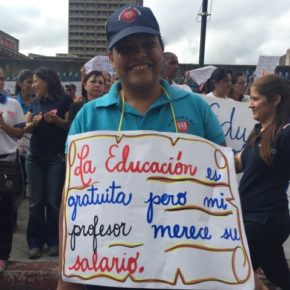 La Educación es
gratuita pero mi
profesor merece su
salario.
Edu